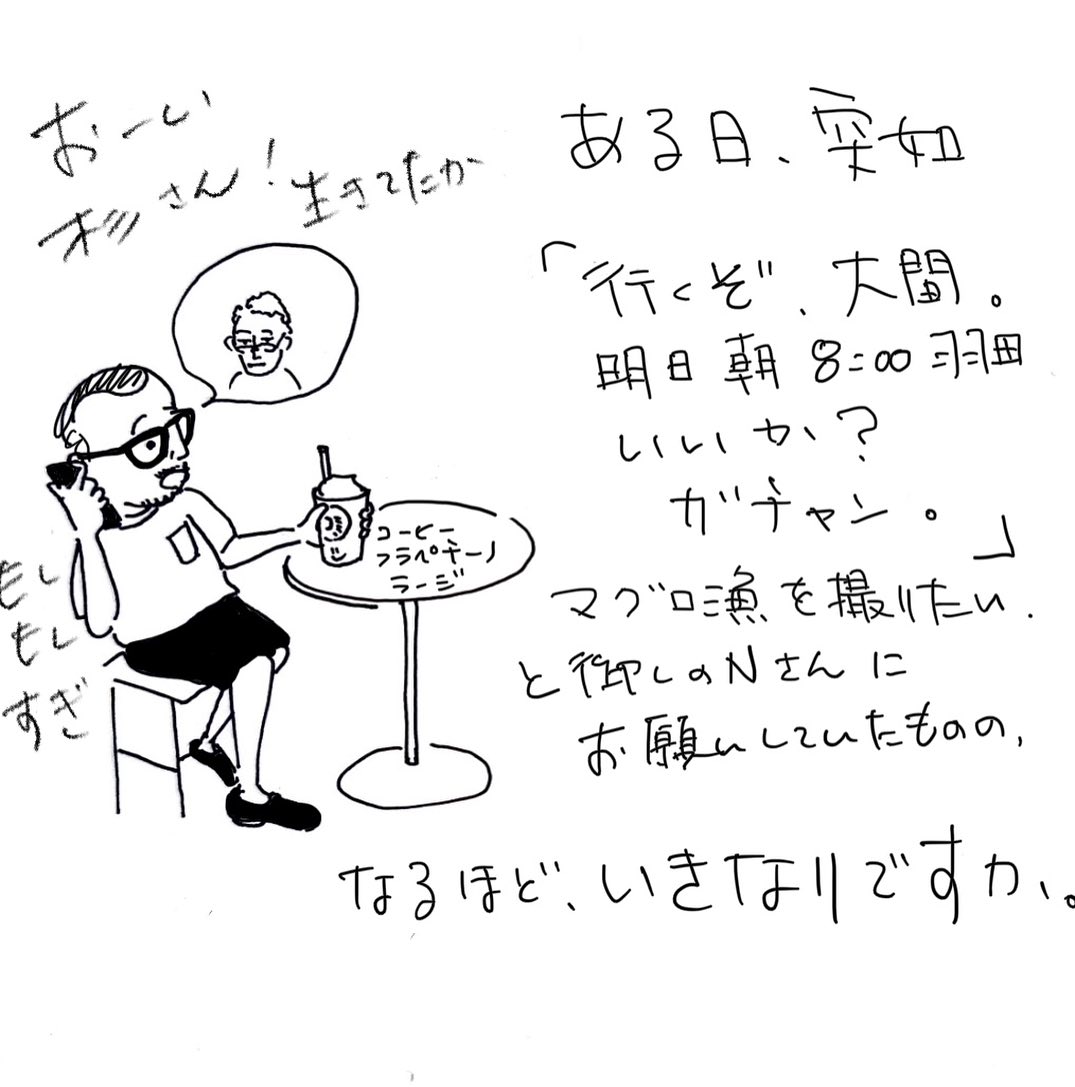 おーい
杉さん!生きてたか
コーヒー
フラペチーノ
ラージ
もし
もし
すぎ
ある日、突如
「行くぞ、大間。
明日朝8:00羽田
いいか?
ガチャン。」
マグロ漁を撮りたい、
と御しのNさんに
お願いしていたものの、
なるほど、いきなりですか、。